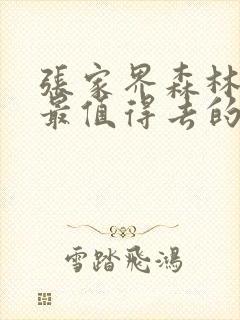 張家界森林
最值得去的
雪踏飛鴻